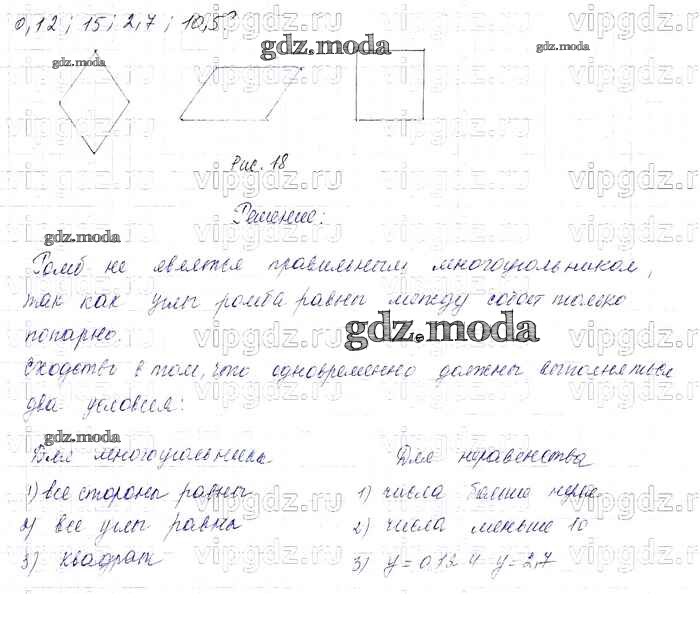 0,12 ; 15 ; 2,7 ; 10,5?
gdz.moda
vipgdz.ru
Рис. 18
Решение:
gdz.moda
Ромб не является правильным многоугольником,
так как углы ромба равны между собой только
попарно.
gdz.moda
Сходство в том, что одновременно должны выполняться
два условия:
gdz.moda
Для многоугольника
Для неравенства
1) все стороны равны
1) числа больше нуля
2) все углы равны
2) числа меньше 10
3) квадрат
3) y = 0,12 и y = 2,7